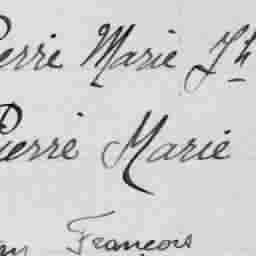 Pierre Marie Jh
Pierre Marie
François